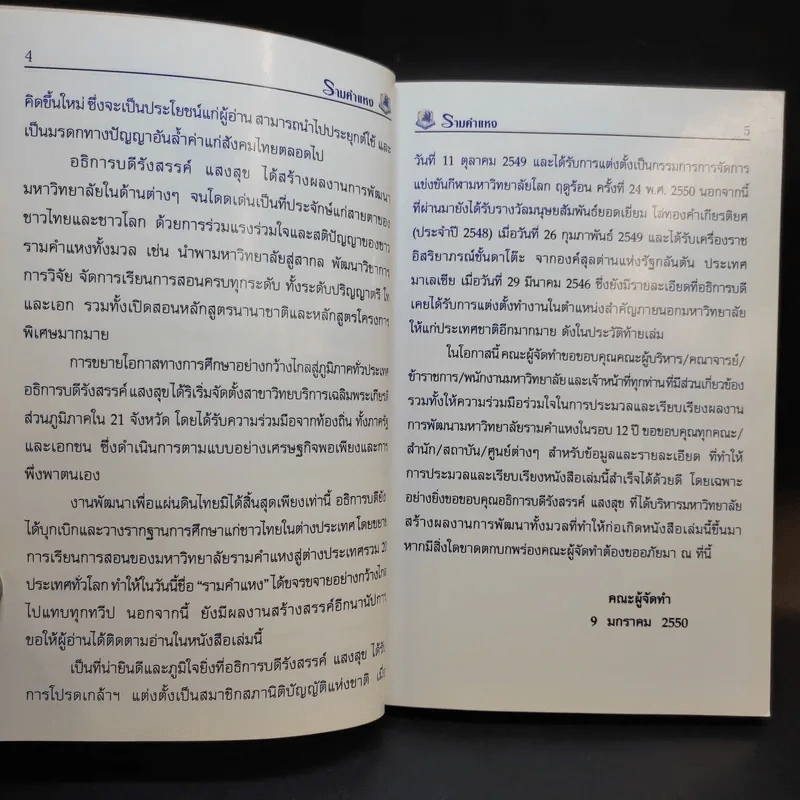 4
รามคำแหง
คิดขึ้นใหม่ ซึ่งจะเป็นประโยชน์แก่ผู้อ่าน สามารถนำไปประยุกต์ใช้ และ
เป็นมรดกทางปัญญาอันล้ำค่าแก่สังคมไทยตลอดไป
อธิการบดีรังสรรค์ แสงสุข ได้สร้างผลงานการพัฒนา
มหาวิทยาลัยในด้านต่างๆ จนโดดเด่นเป็นที่ประจักษ์แก่สายตาของ
ชาวไทยและชาวโลก ด้วยการร่วมแรงร่วมใจและสติปัญญาของชาว
รามคำแหงทั้งมวล เช่น นำพามหาวิทยาลัยสู่สากล พัฒนาวิชาการ
การวิจัย จัดการเรียนการสอนครบทุกระดับ ทั้งระดับปริญญาตรี โท
และเอก รวมทั้งเปิดสอนหลักสูตรนานาชาติและหลักสูตรโครงการ
พิเศษมากมาย
การขยายโอกาสทางการศึกษาอย่างกว้างไกลสู่ภูมิภาคทั่วประเทศ
อธิการบดีรังสรรค์ แสงสุข ได้ริเริ่มจัดตั้งสาขาวิทยบริการเฉลิมพระเกียรติ
ส่วนภูมิภาคใน 21 จังหวัด โดยได้รับความร่วมมือจากท้องถิ่น ทั้งภาครัฐ
และเอกชน ซึ่งดำเนินการตามแบบอย่างเศรษฐกิจพอเพียงและการ
พึ่งพาตนเอง
งานพัฒนาเพื่อแผ่นดินไทยมิได้สิ้นสุดเพียงเท่านี้ อธิการบดียัง
ได้บุกเบิกและวางรากฐานการศึกษาแก่ชาวไทยในต่างประเทศโดยขยาย
การเรียนการสอนของมหาวิทยาลัยรามคำแหงสู่ต่างประเทศรวม
ประเทศทั่วโลก ทำให้ในวันนี้ชื่อ “รามคำแหง” ได้ขจรขจายอย่างกว้างไกล
ไปแทบทุกทวีป นอกจากนี้ ยังมีผลงานสร้างสรรค์อีกนานัปการ
ขอให้ผู้อ่านได้ติดตามอ่านในหนังสือเล่มนี้
เป็นที่น่ายินดีและภูมิใจยิ่งที่อธิการบดีรังสรรค์ แสงสุข ได้รับ
การโปรดเกล้าฯ แต่งตั้งเป็นสมาชิกสภานิติบัญญัติแห่งชาติ เมื่อ
รามคำแหง
5
วันที่ 11 ตุลาคม 2549 และได้รับการแต่งตั้งเป็นกรรมการการจัดการ
แข่งขันกีฬามหาวิทยาลัยโลก ฤดูร้อน ครั้งที่ 24 พ.ศ. 2550 นอกจากนี้
ที่ผ่านมายังได้รับรางวัลมนุษยสัมพันธ์ยอดเยี่ยม โล่ทองคำเกียรติยศ
(ประจำปี 2548) เมื่อวันที่ 26 กุมภาพันธ์ 2549 และได้รับเครื่องราช
อิสริยาภรณ์ชั้นดาโต๊ะ จากองค์สุลต่านแห่งรัฐกลันตัน ประเทศ
มาเลเซีย เมื่อวันที่ 29 มีนาคม 2546 ซึ่งยังมีรายละเอียดที่อธิการบดี
เคยได้รับการแต่งตั้งทำงานในตำแหน่งสำคัญภายนอกมหาวิทยาลัย
ให้แก่ประเทศชาติอีกมากมาย ดังในประวัติท้ายเล่ม
ในโอกาสนี้ คณะผู้จัดทำขอขอบคุณคณะผู้บริหาร/คณาจารย์/
ข้าราชการ/พนักงานมหาวิทยาลัย และเจ้าหน้าที่ทุกท่านที่มีส่วนเกี่ยวข้อง
รวมทั้งให้ความร่วมมือร่วมใจในการประมวลและเรียบเรียงผลงาน
การพัฒนามหาวิทยาลัยรามคำแหงในรอบ 12 ปี ขอขอบคุณทุกคณะ/
สำนัก/สถาบัน/ศูนย์ต่างๆ สำหรับข้อมูลและรายละเอียด ที่ทำให้
การประมวลและเรียบเรียงหนังสือเล่มนี้สำเร็จได้ด้วยดี โดยเฉพาะ
อย่างยิ่งขอขอบคุณอธิการบดีรังสรรค์ แสงสุข ที่ได้บริหารมหาวิทยาลัย
สร้างผลงานการพัฒนาทั้งมวลที่ทำให้ก่อเกิดหนังสือเล่มนี้ขึ้นมา
หากมีสิ่งใดขาดตกบกพร่องคณะผู้จัดทำต้องขออภัยมา ณ ที่นี้
คณะผู้จัดทำ
9 มกราคม 2550